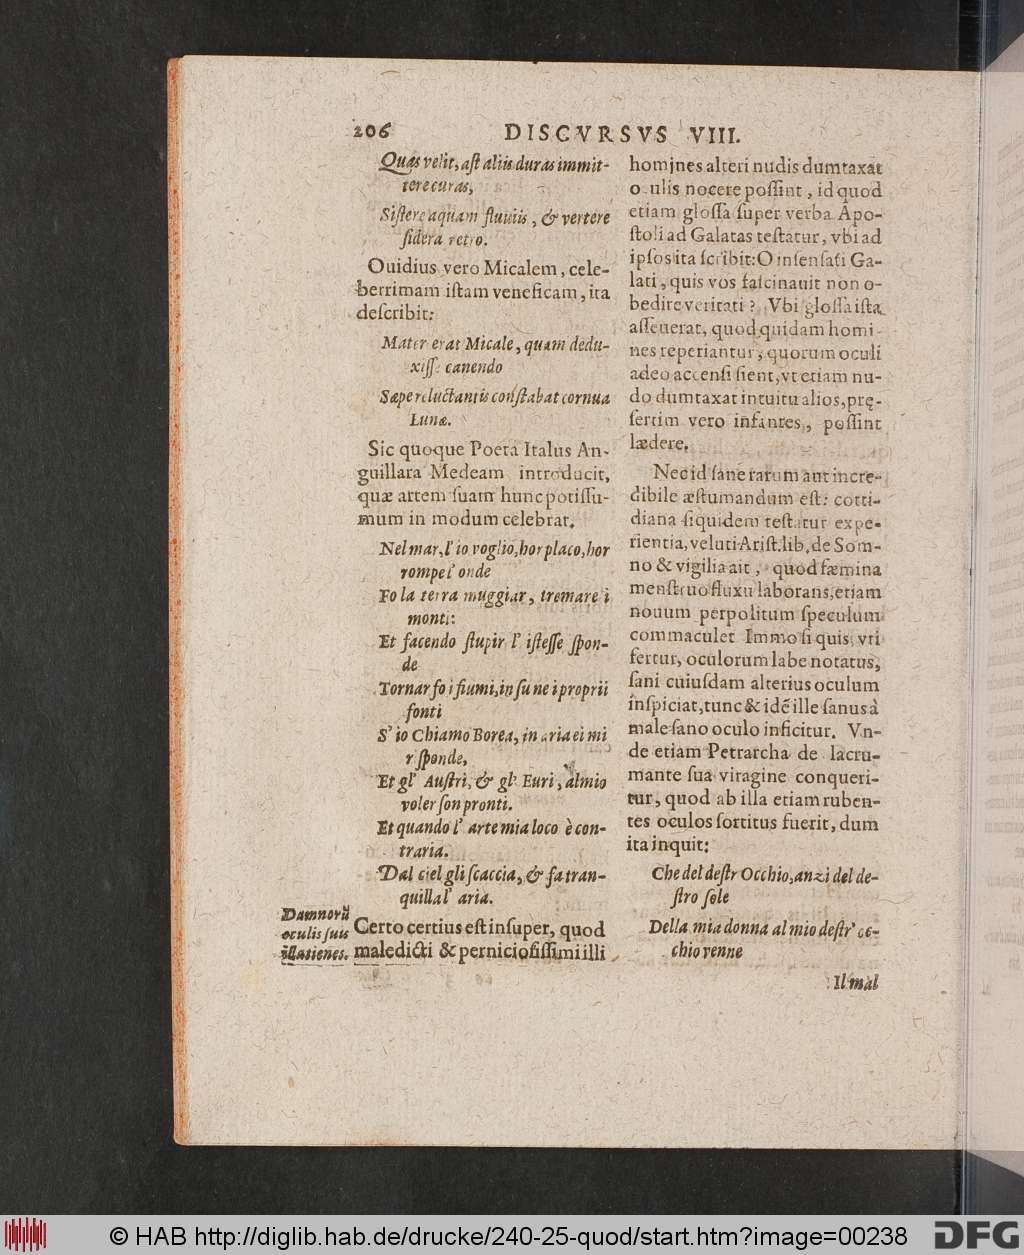 206 DISCVRSVS VIII.
Quas velit, aſt aliis duras immit-
tere curas,
Siſtere aquam fluuiis, & vertere
ſidera retro.
Ouidius vero Micalem, cele-
berrimam iſtam veneficam, ita
deſcribit:
Mater erat Micale, quam dedu-
xiſſe canendo
Sæpe reluctantis conſtabat cornua
Lunæ.
Sic quoque Poeta Italus An-
guillara Medeam introducit,
quæ artem ſuam hunc potiſſu-
mum in modum celebrat.
Nel mar, l' io voglio, hor placo, hor
rompe l' onde
Fo la terra muggiar, tremare i
monti:
Et facendo ſtupir l' iſteſſe ſpon-
de
Tornar fo i fiumi, in ſu ne i proprii
fonti
S' io Chiamo Borea, in aria ei mi
r ſponde,
Et gl' Auſtri, & gl' Euri, al mio
voler ſon pronti.
Et quando l' arte mia loco è con-
traria.
Dal ciel gli ſcaccia, & fa tran-
quilla l' aria.
Damnorū
oculis ſuis
illationes.
Certo certius eſt inſuper, quod
maledicti & pernicioſiſſimi illi
homines alteri nudis dumtaxat
o ulis nocere poſſint, id quod
etiam gloſſa ſuper verba Apo-
ſtoli ad Galatas teſtatur, vbi ad
ipſos ita ſcribit: O inſenſati Ga-
lati, quis vos faſcinauit non o-
bedire veritati? Vbi gloſſa iſta
aſſeuerat, quod quidam homi-
nes reperiantur, quorum oculi
adeo accenſi ſient, vt etiam nu-
do dumtaxat intuitu alios, prę-
ſertim vero infantes, poſſint
lædere.
Nec id ſane rarum aut incre-
dibile æſtumandum eſt: cotti-
diana ſiquidem teſtatur expe-
rientia, veluti Ariſt. lib. de Som-
no & vigilia ait, quod fæmina
menſtruo fluxu laborans, etiam
nouum perpolitum ſpeculum
commaculet Immo ſi quis, vti
fertur, oculorum labe notatus,
ſani cuiuſdam alterius oculum
inſpiciat, tunc & idē ille ſanus à
male ſano oculo inficitur. Vn-
de etiam Petrarcha de lacru-
mante ſua viragine conqueri-
tur, quod ab illa etiam ruben-
tes oculos ſortitus fuerit, dum
ita inquit:
Che del deſtr Occhio, anzi del de-
ſtro ſole
Della mia donna al mio deſtr' oc-
chio venne
Il mal
© HAB http://diglib.hab.de/drucke/240-25-quod/start.htm?image=00238
DFG